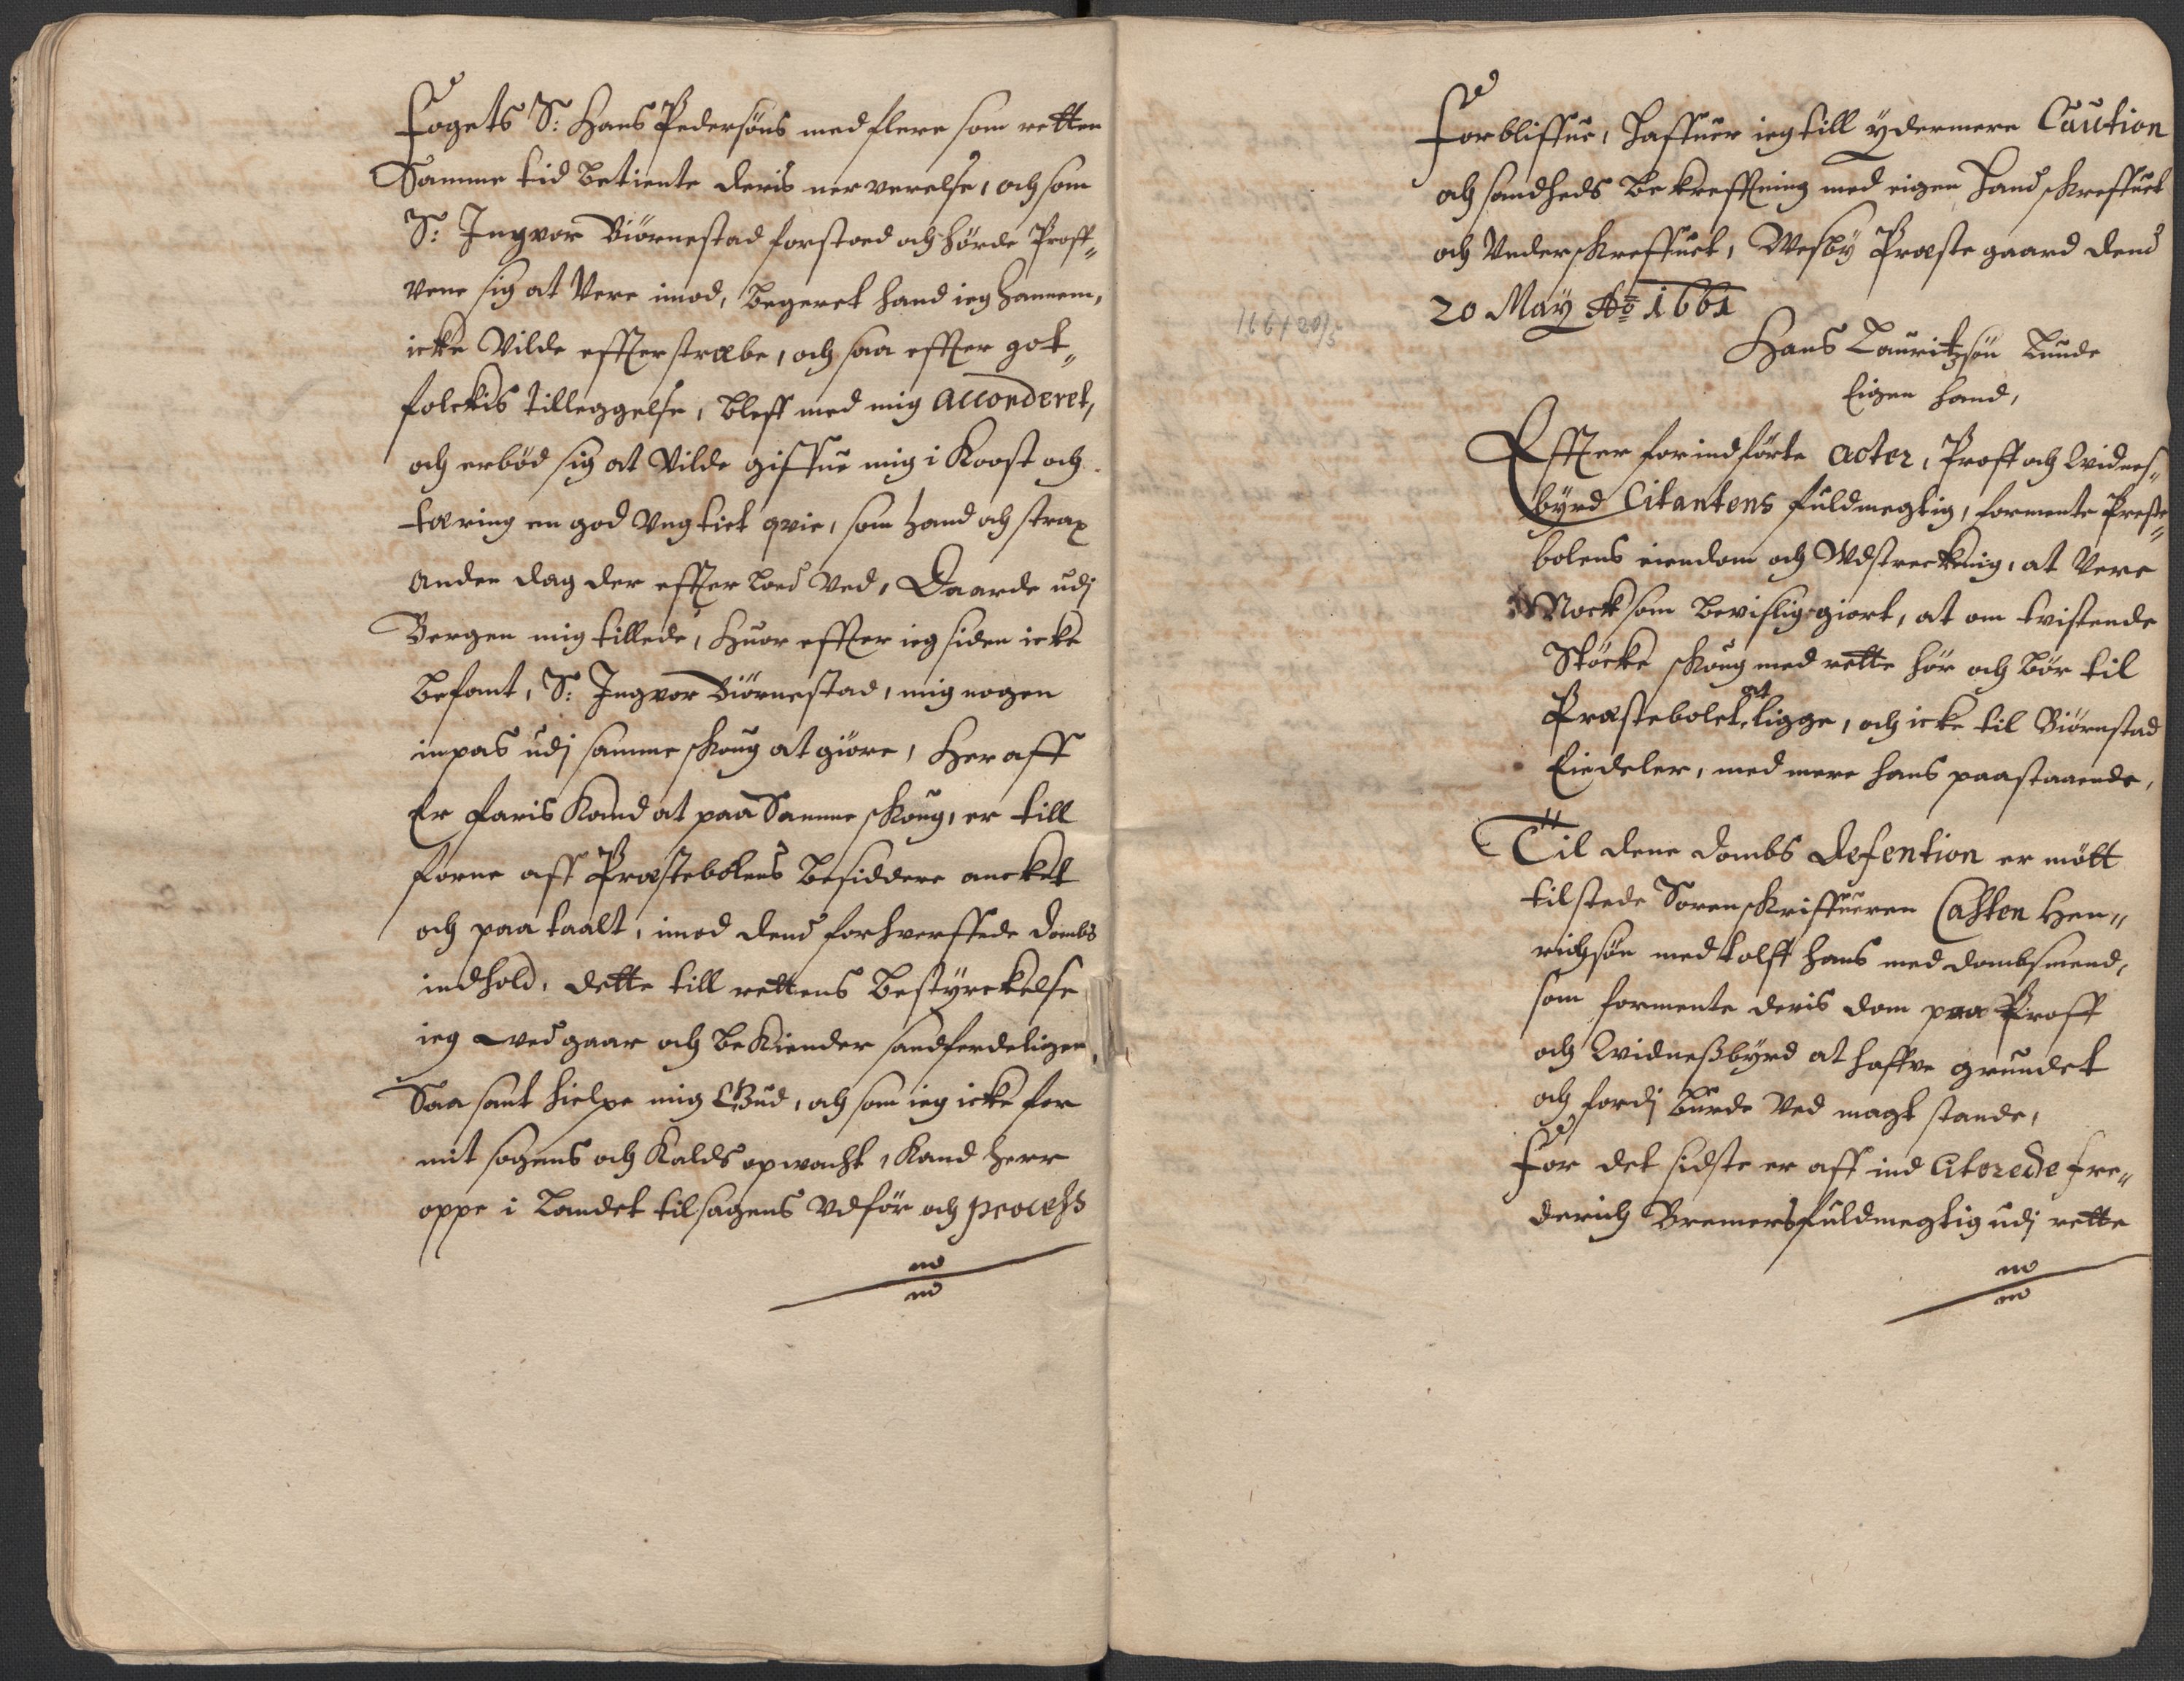 Fogets S: Hans Pedersöns med flere som retten
Samme tid betiente deris nerverelse, och som
S: Ingvor Biörnestad forstoed och hörde Proff„
vene sig at Vere imod, begeret hand ieg hannem,
icke Vilde effter stræbe, och saa effter got„
folckis tilleggelse, bleff med mig accorderet,
och erböd sig at Vilde giffue mig i Kaast och
tæring en god Ung tiet qvie, som hand och strax
anden dag der effter loed Ved, Daarde udj
Bergen mig tillede, Huor effter ieg siden icke
befant, S: Ingvor Biörnestad, mig nogen
inpas udj samme skoug at giöre, Her aff
Er faris Kand at paa Samme skoug, er till
forne aff Præstebolens besiddere ancket
och paa taalt, imod dend forhverffede dombs
indhold, dette till rettens bestyrckelse
ieg ved gaar och be Kiender sandferdeligen,
Saa sant hielpe mig Gud, och som ieg icke for
mit sogens och Kalds opwacht, Kand herr
oppe i Landet til sagens Udför och process
Forbliffue, haffuer ieg till ydermere Caution
och sandheds be kreffning med eigen hand skreffuet
och Underskreffuet, Wesby Præste gaard dend
20 May Ao 1661
1661 20/5
Hans Lauritzsön Lunde
Eigen hand,
Effter forindförte acter, Proff och Widnes„
byrd Citantens fuldmegtig, formente Preste„
bolens eiendom och Udstreckning, at Vere
Nock som bevislig giort, at om tvistende
Stöcke skoug med rette hör och bör til
Præstebolet at ligge, och icke til Biörnstad
Eiedeler, med mere hans paastaaende,
Til dene dombs defention er mött
tilstede Sorenskriffueren Casten Hen„
richsön med tolff hans med dombsmend,
som formente deris dom paa Proff
och Widneßbyrd at haffve grundet
och fordj burde Ved magt stande,
For det sidste er aff ind Citerede Fre„
derich Bremers fuldmegtig udj rette